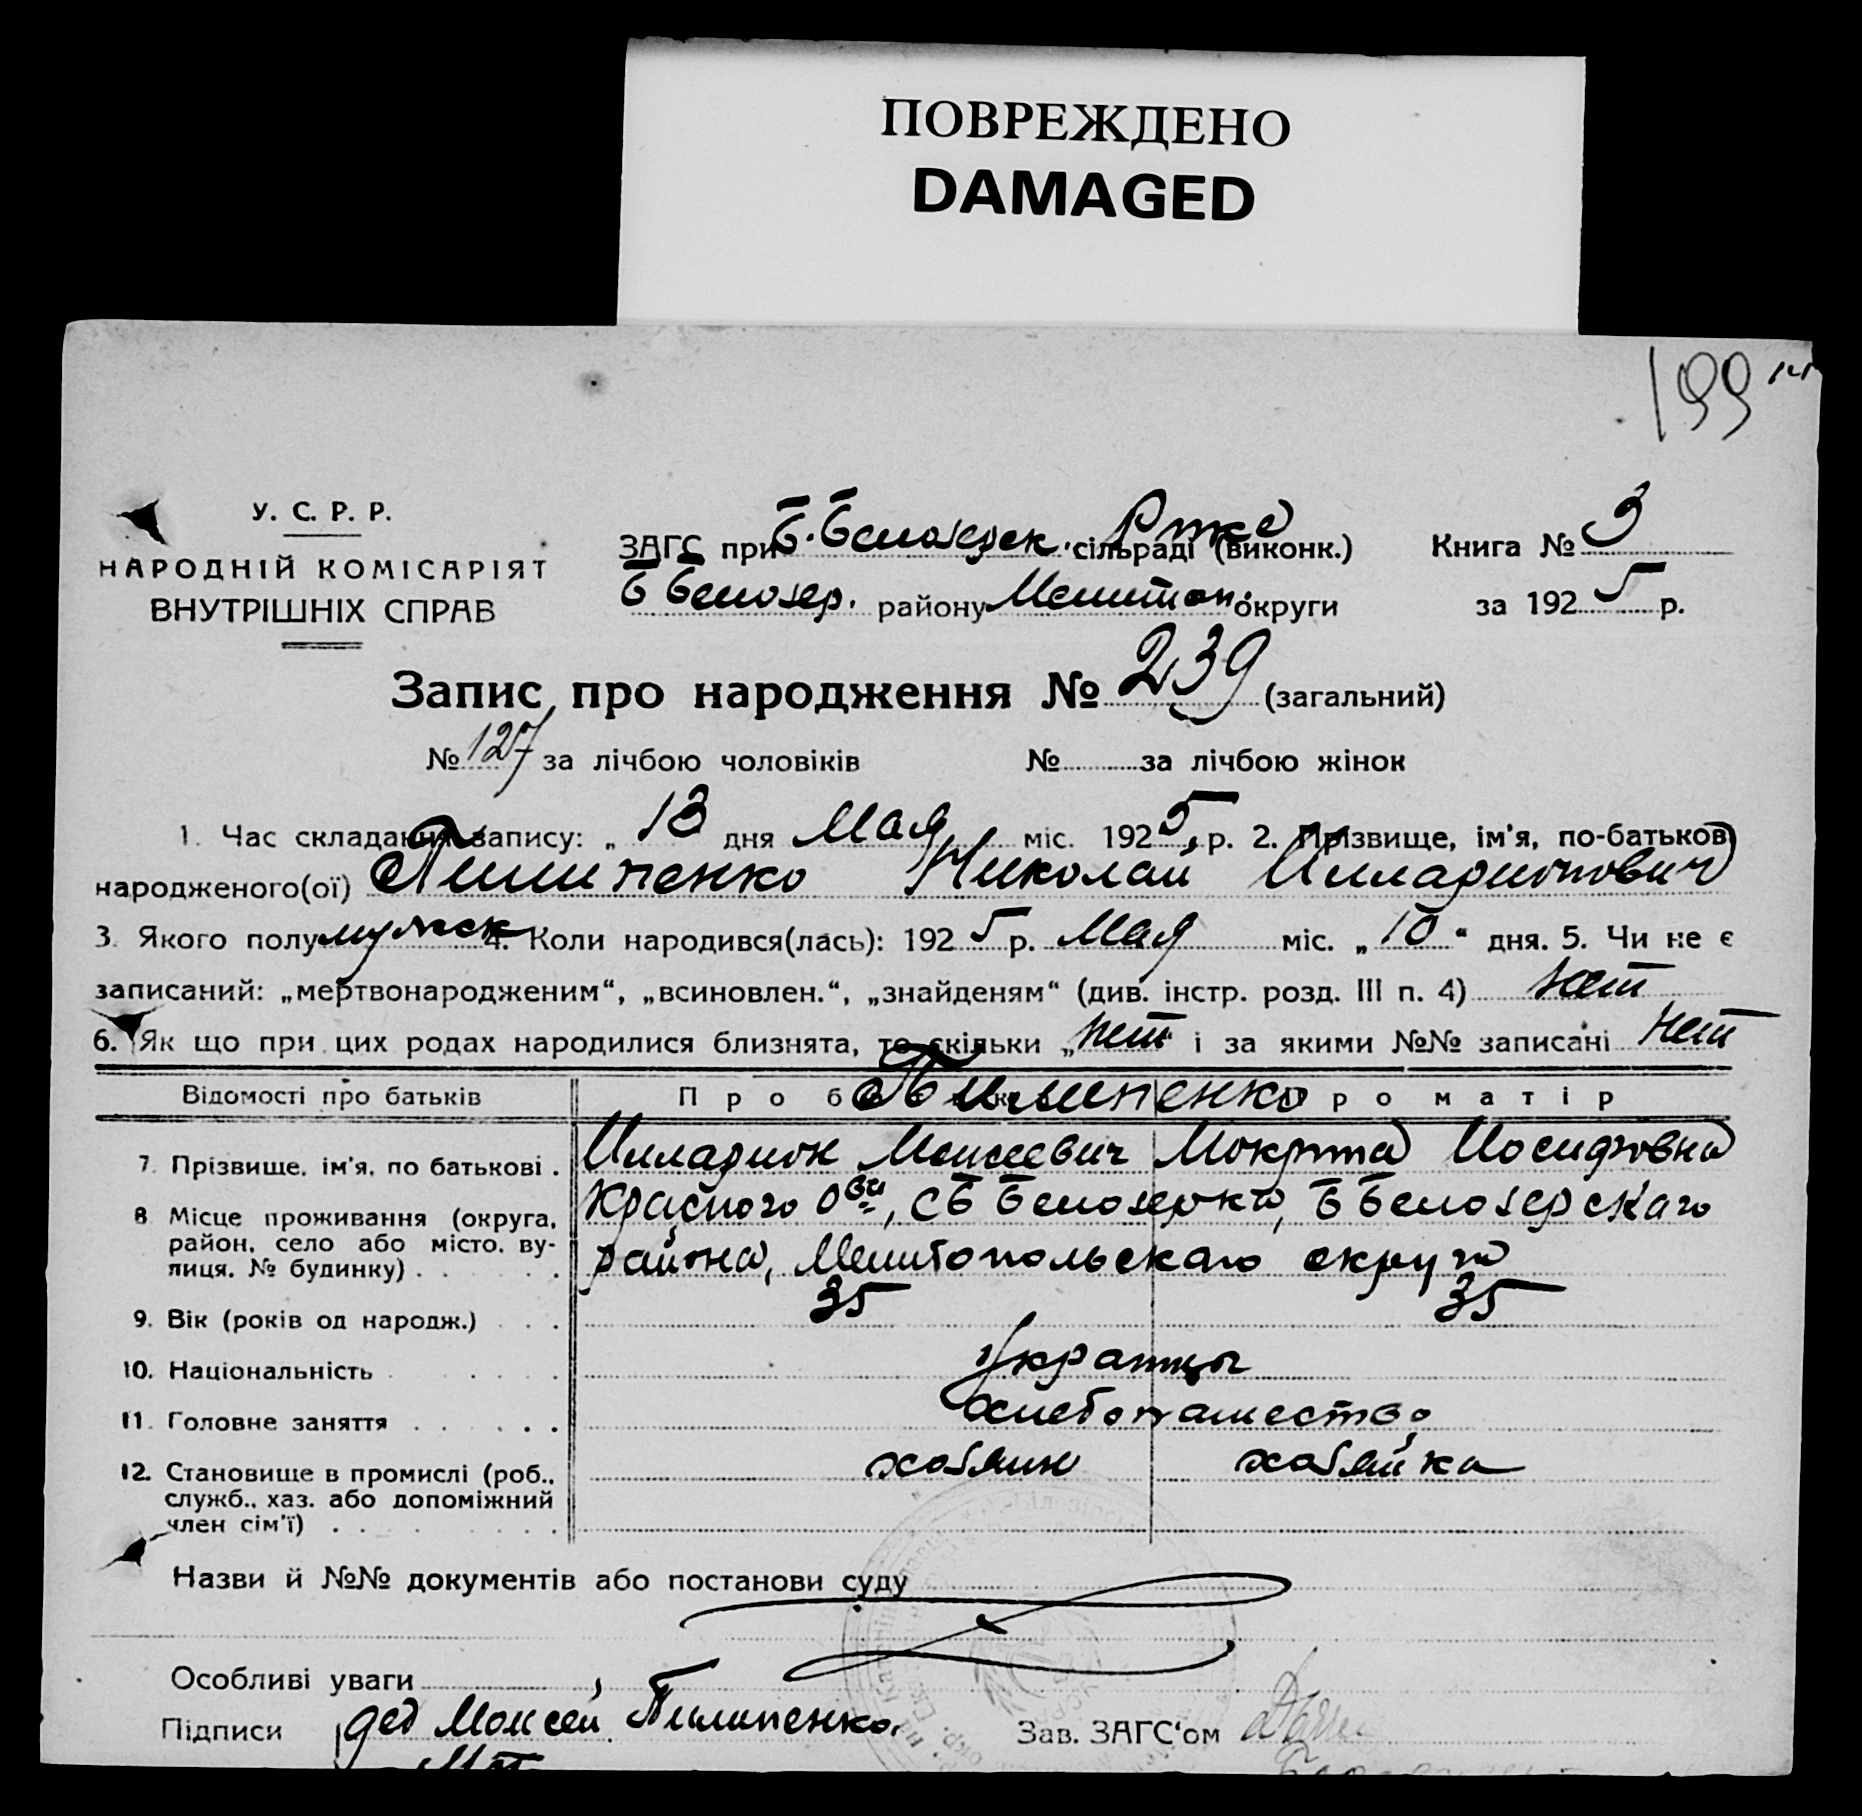 ПОВРЕЖДЕНО
DAMAGED
199
У. С. Р. Р.
НАРОДНІЙ КОМІСАРІЯТ
ВНУТРІШНІХ СПРАВ
ЗАГС при Б. Белозерск. сільраді (виконк.) Книга № 3
Б Белозер. району Мелитоп. округи за 1925 р.
Запис про народження № 239 (загальний)
№ 127 за лічбою чоловіків № за лічбою жінок
1. Час складання запису: „ 13 дня Мая міс. 1925 р. 2. Прізвище, ім'я, по-батькові
народженого(ої) Пилипенко Николай Илларионович
3. Якого полу мужск 4. Коли народився(лась): 1925 р. Мая міс. „10“ дня. 5. Чи не є
записаний: „мертвонародженим“, „всиновлен.“, „знайденям“ (див. інстр. розд. III п. 4) нет
6. Як що при цих родах народилися близнята, то скільки „нет“ і за якими №№ записані нет
Відомості про батьків Про батька Про матір
Пилипенко
7. Прізвище, ім'я, по батькові . Илларион Моисеевич Мокрина Иосифовна
8 Місце проживання (округа, Красного О-ва, с Б Белозерка, Б Белозерскаго
район, село або місто, ву- района, Мелитопольскаго округа
лиця, № будинку) . . . . . .
9. Вік (років од народж.) . . . 35 35
10. Національність . . . . . . Украинцы
11. Головне заняття . . . . . . Хлебопашество
12. Становище в промислі (роб., хозяин хозяйка
служб., хаз. або допоміжний
член сім'ї) . . . . . . . .
Назви й №№ документів або постанови суду
Особливі уваги
Підписи дед Моисей Пилипенко. Зав. ЗАГС'ом